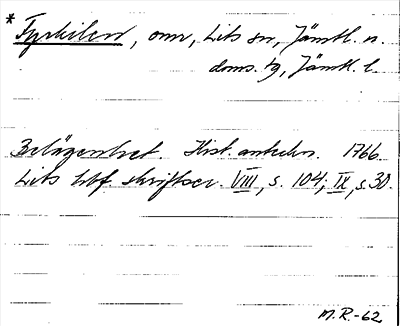 * Fyrkilen, omr, Lits sn, Jämtl. n.
doms. tg, Jämtl. l.
Belägenhet. Hist. anteckn. 1766.
Lits hbf. skriftser. VIII, s. 104; IX, s 30.
M.R.-62